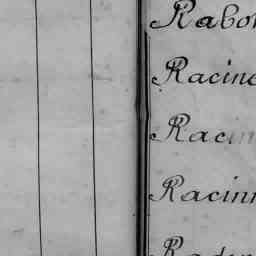 Rabo
Racine
Racin
Racinn
Rade